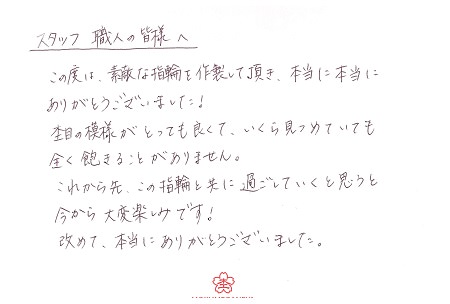 スタッフ 職人の皆様へ
この度は、素敵な指輪を作製して頂き、本当に本当に
ありがとうございました!
杢目の模様がとっても良くて、いくら見つめていても
全く飽きることがありません。
これから先、この指輪と共に過ごしていくと思うと
今から大変楽しみです!
改めて、本当にありがとうございました。